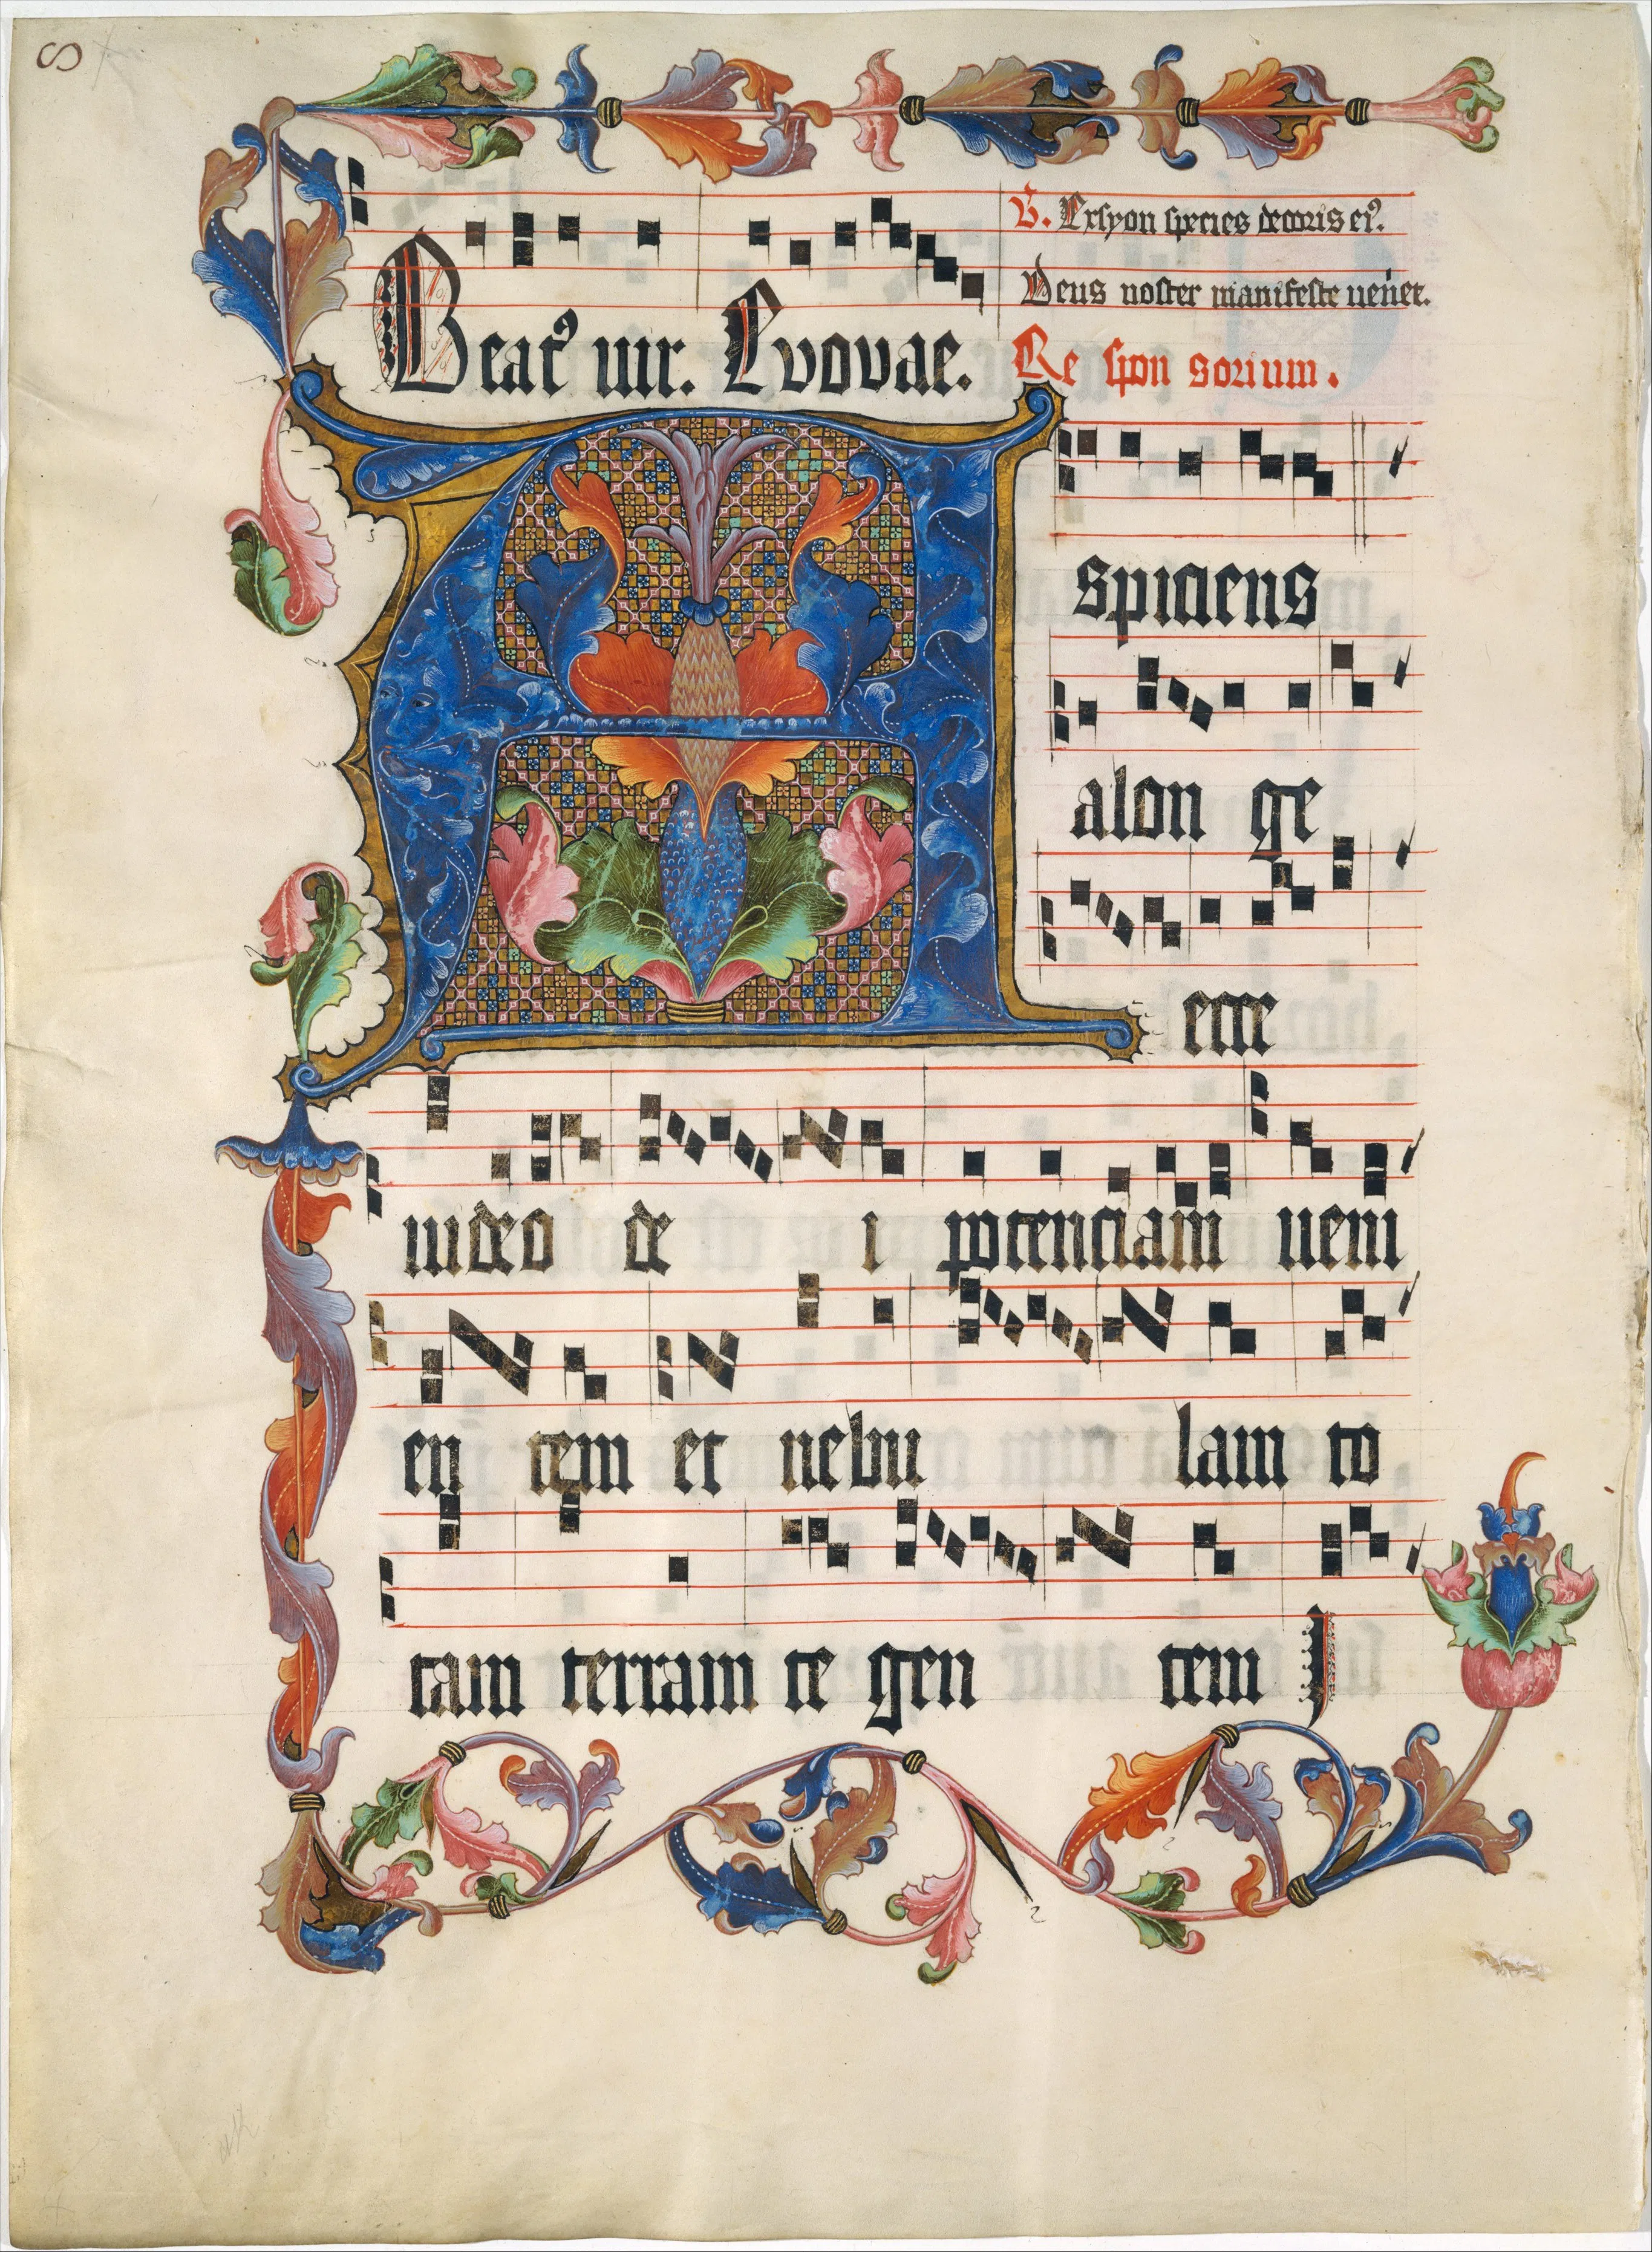 Beatꝰ uir. Evovae.
V. Exsyon species decoris eiꝰ.
Deus noster manifeste ueniet.
Re spon sorium.
A spiciens
alon ge
ecce
uideo de i potenciam ueni
en tem et nebu lam to
tam terram te gen tem I